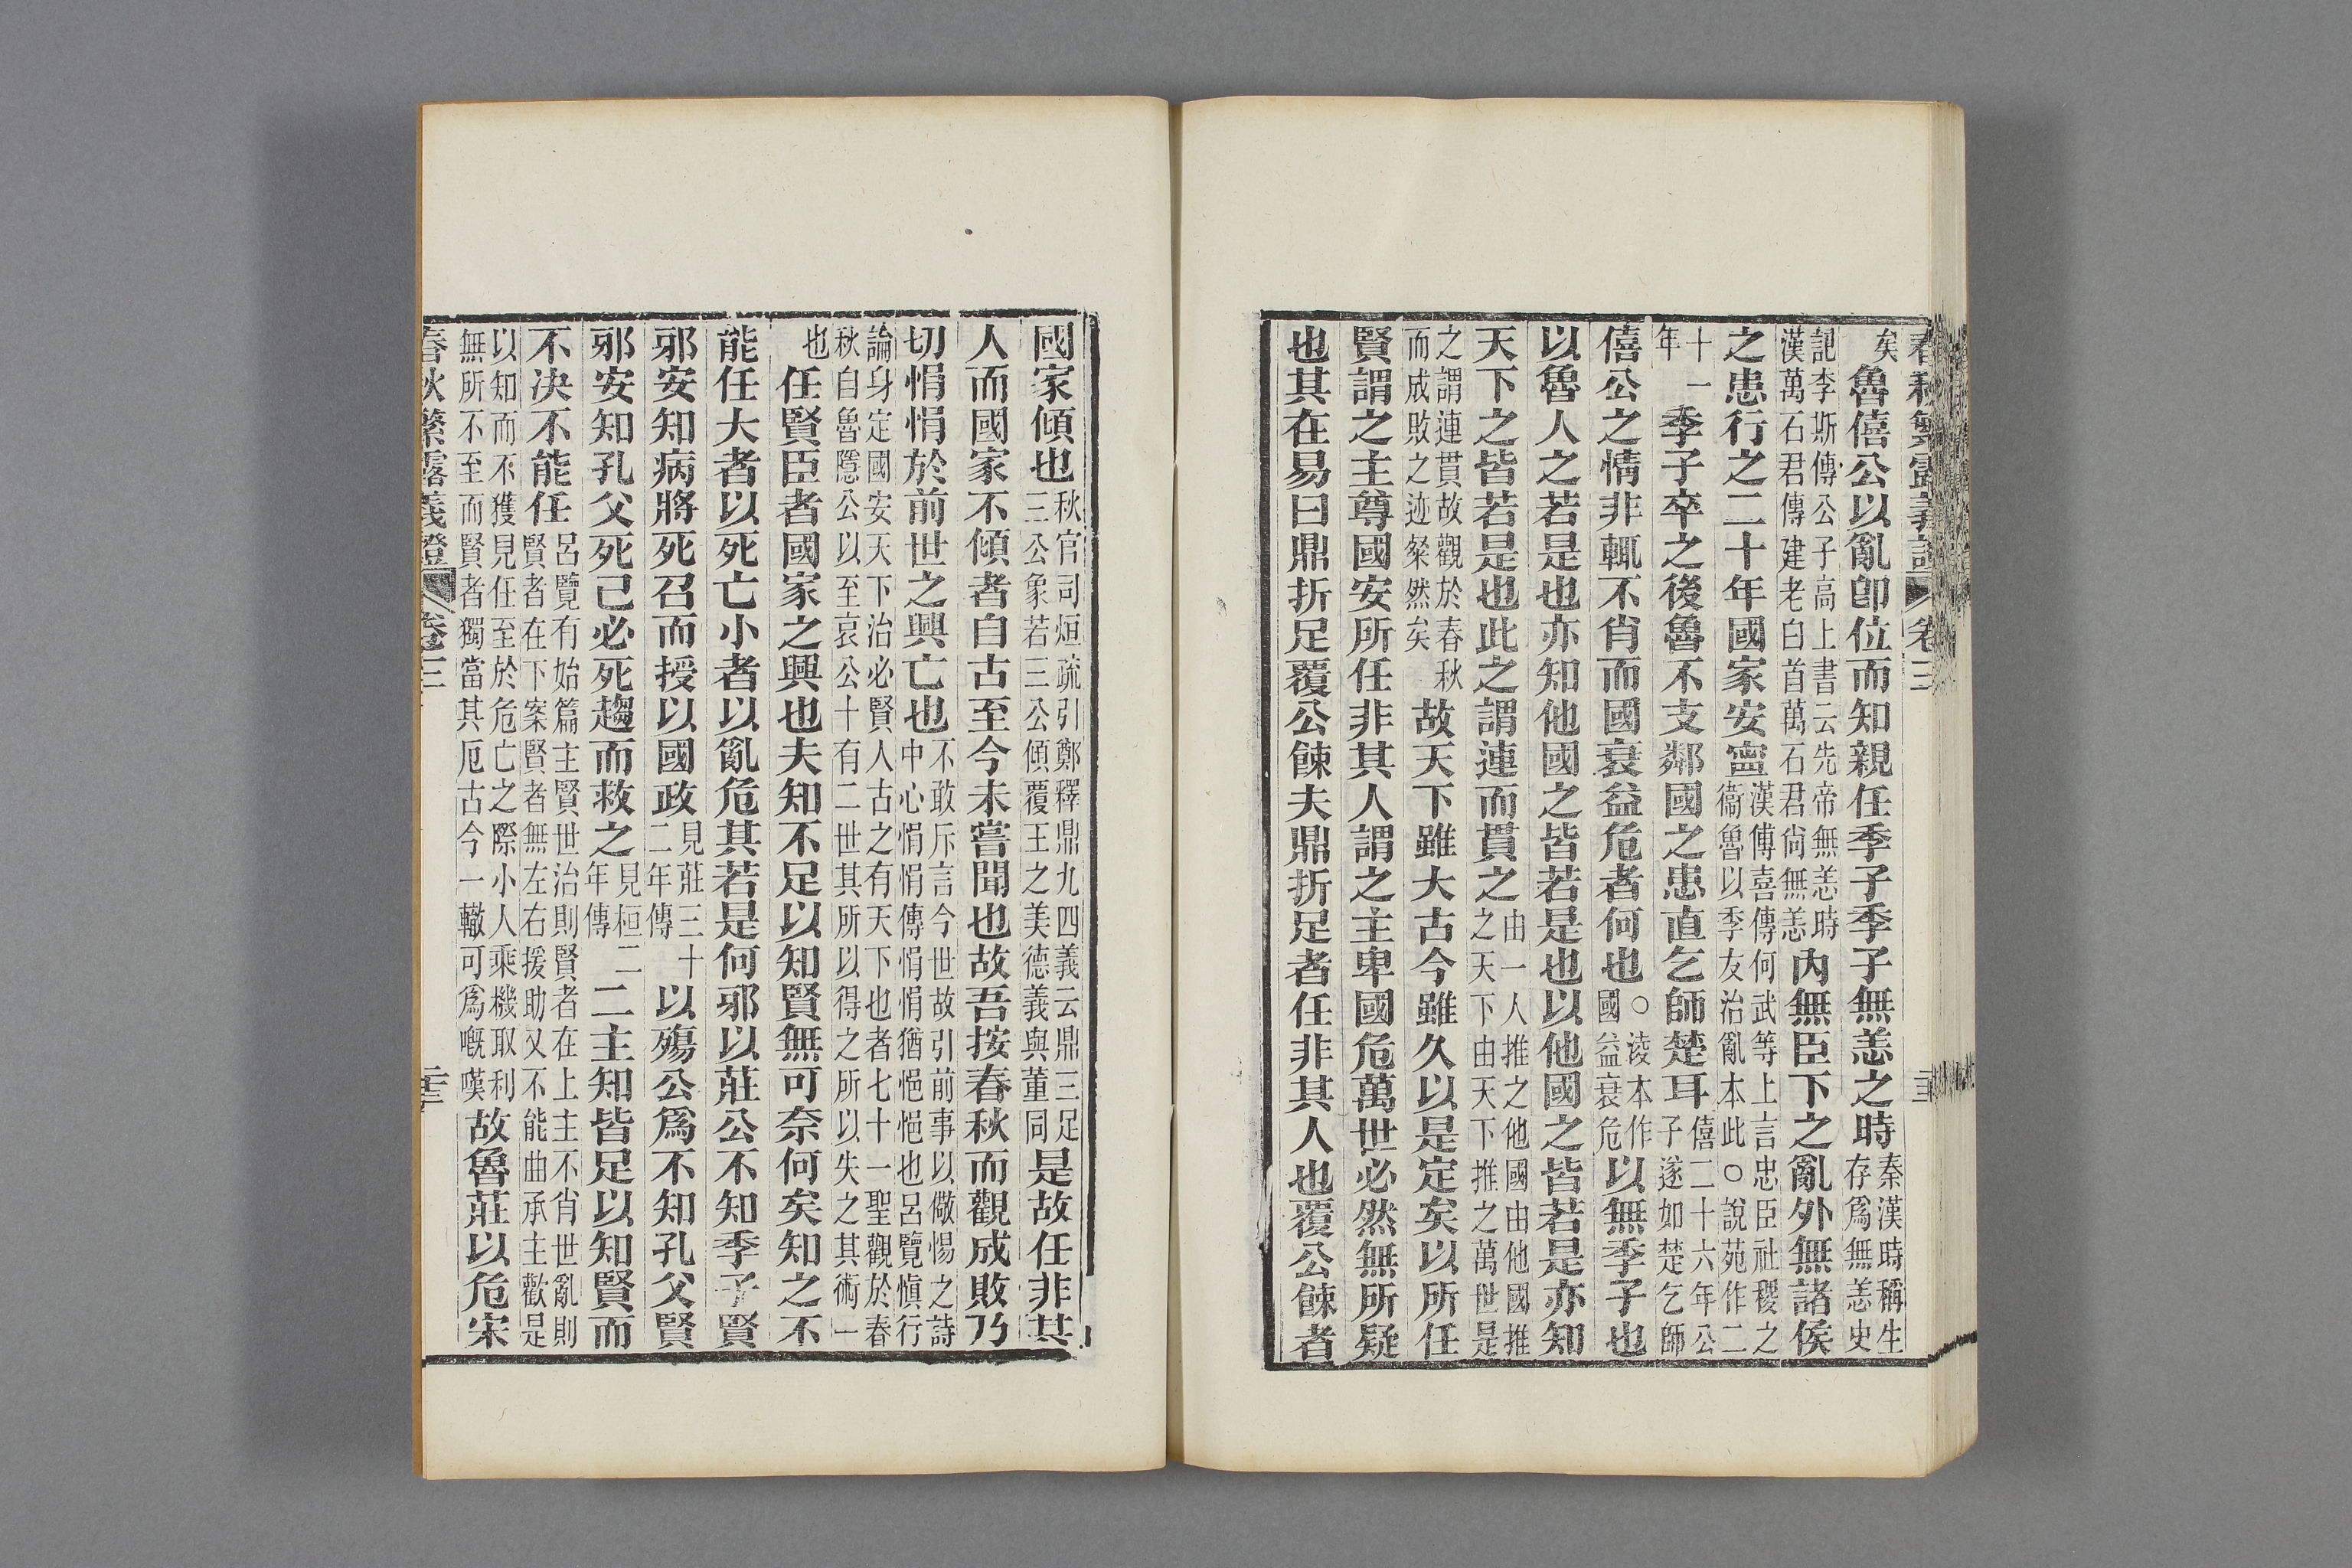 春秋繁露義證 卷三
矣魯僖公以亂卽位而知親任季子季子無恙之時秦漢時稱生存爲無恙史
記李斯傳公子高上書云先帝無恙時漢萬石君傳建老白首萬石君尙無恙內無臣下之亂外無諸侯
之患行之二十年國家安寧漢傅喜傳何武等上言忠臣社稷之衞魯以季友治亂本此○說苑作二
十一年季子卒之後魯不支鄰國之患直乞師楚耳僖二十六年公子遂如楚乞師
僖公之情非輒不肖而國衰益危者何也○淩本作國益衰危以無季子也
以魯人之若是也亦知他國之皆若是也以他國之皆若是亦知
天下之皆若是也此之謂連而貫之由一人推之他國由他國推之天下由天下推之萬世是
之謂連貫故觀於春秋而成敗之迹粲然矣故天下雖大古今雖久以是定矣以所任
賢謂之主尊國安所任非其人謂之主卑國危萬世必然無所疑
也其在易曰鼎折足覆公餗夫鼎折足者任非其人也覆公餗者
國家傾也秋官司烜疏引鄭釋鼎九四義云鼎三足三公象若三公傾覆王之美德義與董同是故任非其
人而國家不傾者自古至今未嘗聞也故吾按春秋而觀成敗乃
切悁悁於前世之興亡也不敢斥言今世故引前事以儆惕之詩中心悁悁傳悁悁猶悒悒也呂覽愼行
論身定國安天下治必賢人古之有天下也者七十一聖觀於春秋自魯隱公以至哀公十有二世其所以得之所以失之其術一
也任賢臣者國家之興也夫知不足以知賢無可奈何矣知之不
能任大者以死亡小者以亂危其若是何邪以莊公不知季子賢
邪安知病將死召而授以國政見莊三十二年傳以殤公爲不知孔父賢
邪安知孔父死己必死趨而救之見桓二年傳二主知皆足以知賢而
不決不能任呂覽有始篇主賢世治則賢者在上主不肖世亂則賢者在下案賢者無左右援助又不能曲承主歡是
以知而不獲見任至於危亡之際小人乘機取利無所不至而賢者獨當其厄古今一轍可爲嘅嘆故魯莊以危宋
春秋繁露義證 卷三